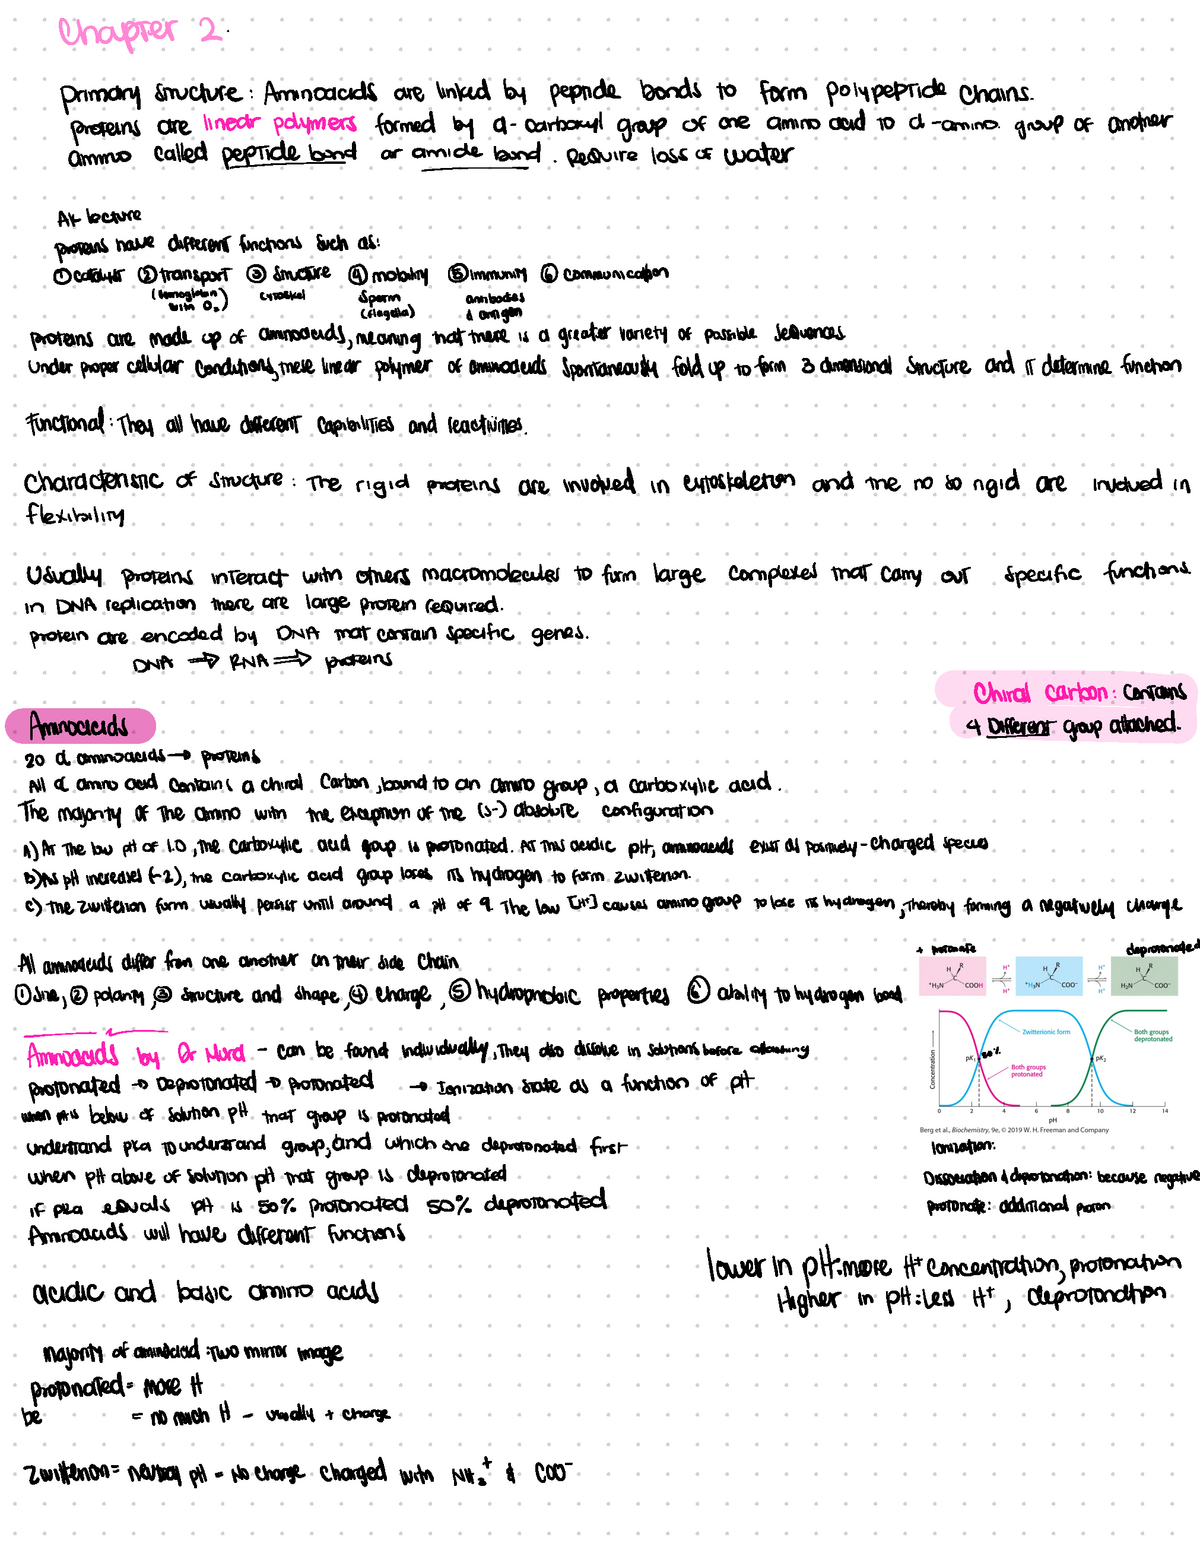 Chapter 2.
Primary structure: Aminoacids are linked by peptide bonds to form polypeptide chains.
proteins are linear polymers formed by α-carboxyl group of one amino acid to α-amino group of another
amino called peptide bond or amide bond. Require loss of water
At lecture
proteins have different functions such as:
① catalyst ② transport ③ structure ④ mobility ⑤ immunity ⑥ communication
(hemoglobin with O₂) cytoskel sperm (flagella) antibodies & antigen
proteins are made up of aminoacids, meaning that there is a greater variety of possible sequences
under proper cellular conditions, these linear polymer of aminoacids spontaneously fold up to form 3 dimensional structure and it determine function
Functional: They all have different capibilities and reactivities.
Characteristic of structure: The rigid proteins are involved in cytoskeleton and the no so rigid are involved in
flexibility
Usually proteins interact with others macromolecules to form large complexes that carry out specific functions.
in DNA replication there are large protein required.
protein are encoded by DNA that contain specific genes.
DNA ⇒ RNA ⇒ proteins
Chiral carbon: contains
4 Different group attached.
Aminoacids
20 α aminoacids → proteins
All α amino acid contains a chiral carbon, bound to an amino group, a carboxylic acid.
The majority of the amino with the exception of the (s-) absolute configuration
A) At the low pH of 1.0, the carboxylic acid group is protonated. At this acidic pH, aminoacids exist as positively-charged species
b) As pH increases (~2), the carboxylic acid group loses its hydrogen to form zwitterion.
c) The zwitterion form usually persist until around a pH of 9. The low [H+] causes amino group to lose its hydrogen, thereby forming a negatively charge
All aminoacids differ from one another on their side chain
① size, ② polarity, ③ structure and shape, ④ charge, ⑤ hydrophobic properties ⑥ ability to hydrogen bond
+ protonate deprotonated
H R ⁺H₃N C COOH H⁺ H⁺ H R ⁺H₃N C COO⁻ H⁺ H⁺ H R H₂N C COO⁻
Zwitterionic form
Both groups deprotonated
pK₁ 50% pK₂
Both groups protonated
Concentration
0 2 4 6 8 10 12 14
pH
Berg et al., Biochemistry, 9e, © 2019 W. H. Freeman and Company
Aminoacids by Dr - can be found individually, They also dissolve in solutions before
protonated → Deprotonated → protonated → Ionization state as a function of pH
when is below of solution pH that group is protonated
understand pka to understand group, and which one deprotonated first
when pH above of solution pH that group is deprotonated
if pka equals pH is 50% protonated 50% deprotonated
Aminoacids will have different functions
Ionization:
Dissociation & deprotonation: because negative
protonate: additional proton
lower in pH: more H⁺ concentration, protonation
Higher in pH: less H⁺, deprotonation
acidic and basic amino acids
majority of aminoacid: Two mirror image
protonated = more H
be = no much H - usually + charge
Zwitterion = neutral pH - No charge charged with NH₃⁺ & COO⁻